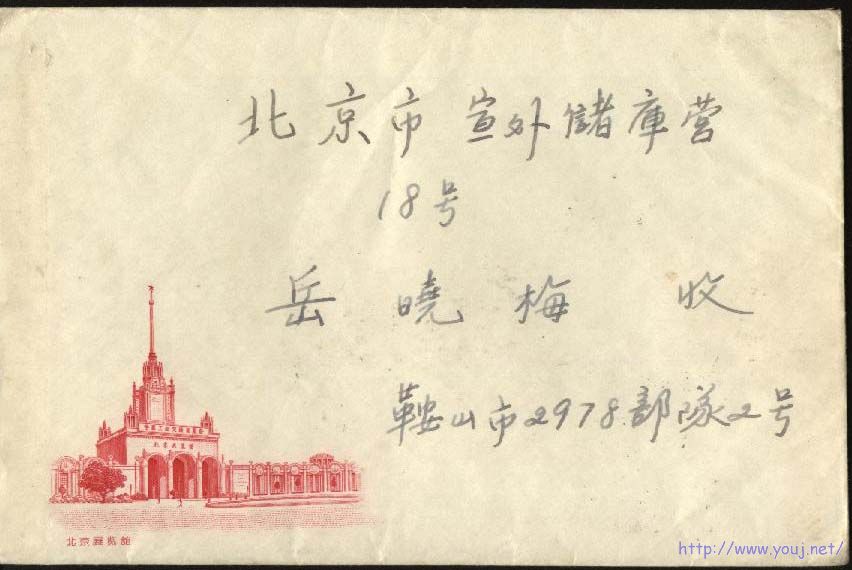 北京市 宣外儲庫营
18号
岳曉梅 收
鞍山市2978部隊2号
北京展览館
http://www.youj.net/